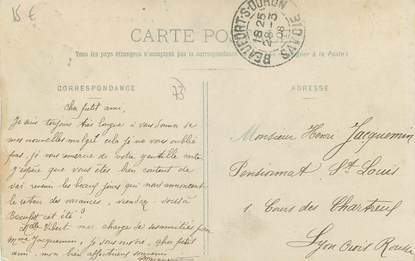 15 €
CARTE POSTALE
BEAUFORT-S-DORON
SAVOIE
18 25
28 - 3
08
Tous les pays étrangers n'acceptent pas la correspondance à la Poste)
CORRESPONDANCE
73
ADRESSE
Cher petit ami,
Je suis toujours très longue à vous donner de
mes nouvelles malgré cela je ne vous oublie
pas, je vous remercie de votre gentille carte
J'espère que vous êtes bien content de
voir venir les beaux jours qui nous annoncent
le retour des vacances, viendrez vous à
Beaufort cet été ?
Melle Vibert me charge de ses amitiés pour
Mme Jacquemin, je vous envoie, cher petit
ami, mon bien affectueux souvenir
Monsieur Henri Jacquemin
Pensionnat St Louis
1 Cours des Chartreux
Lyon Croix Rousse